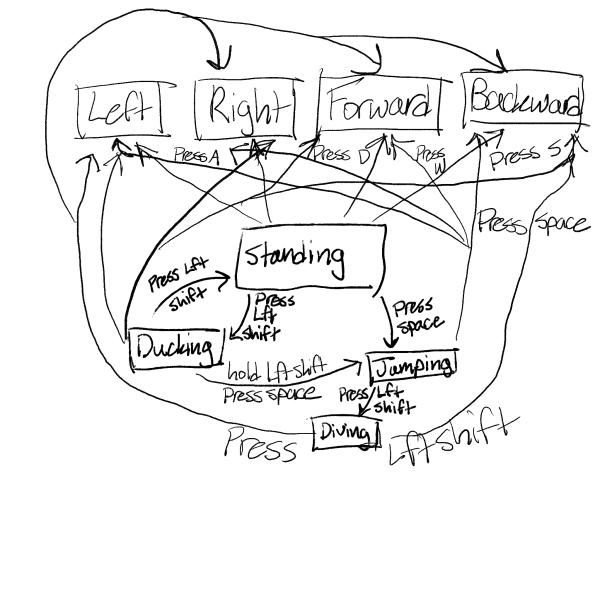 Left
Right
Forward
Backward
Press A
Press D
Press
W
Press S
Press space
Standing
Press Lft
shift
Press
Lft
shift
Press
space
Ducking
hold Lft shift
Press space
Jumping
Press Lft
shift
Diving
Press Lft shift